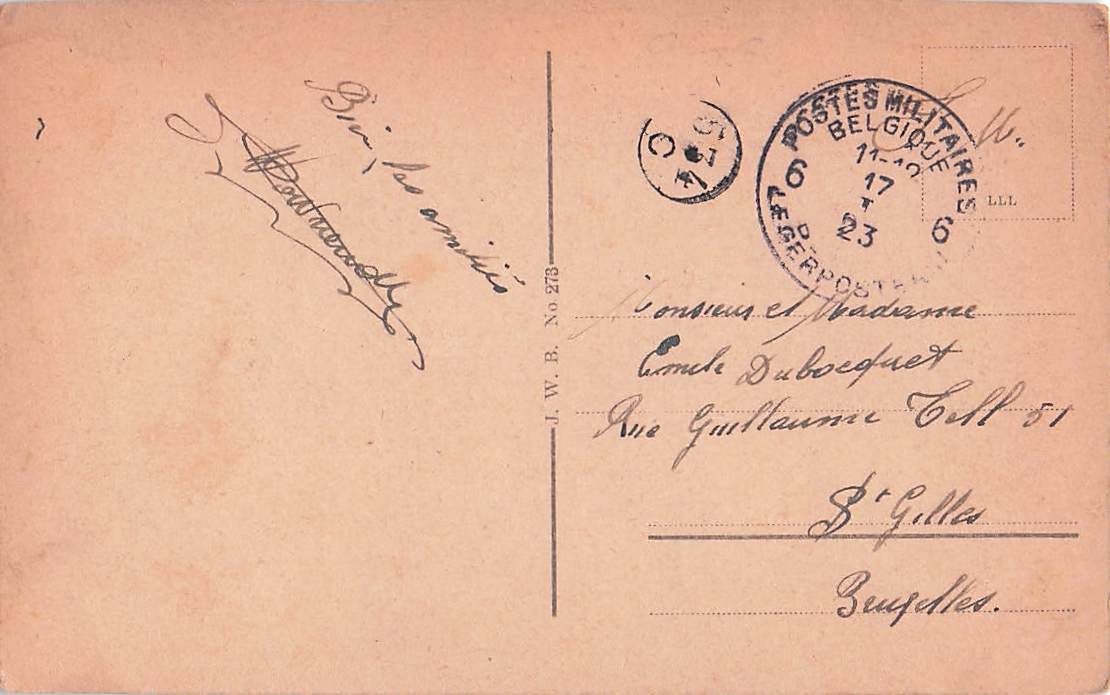 Bien des amitiés
S. M.
POSTES MILITAIRES
BELGIQUE
11-12
17
I
23
6 6
LEGERPOSTERIJ
LLL
J. W. B. No 273
Monsieur et Madame
Emile Dubocquet
Rue Guillaume Tell 51
St Gilles
Bruxelles.